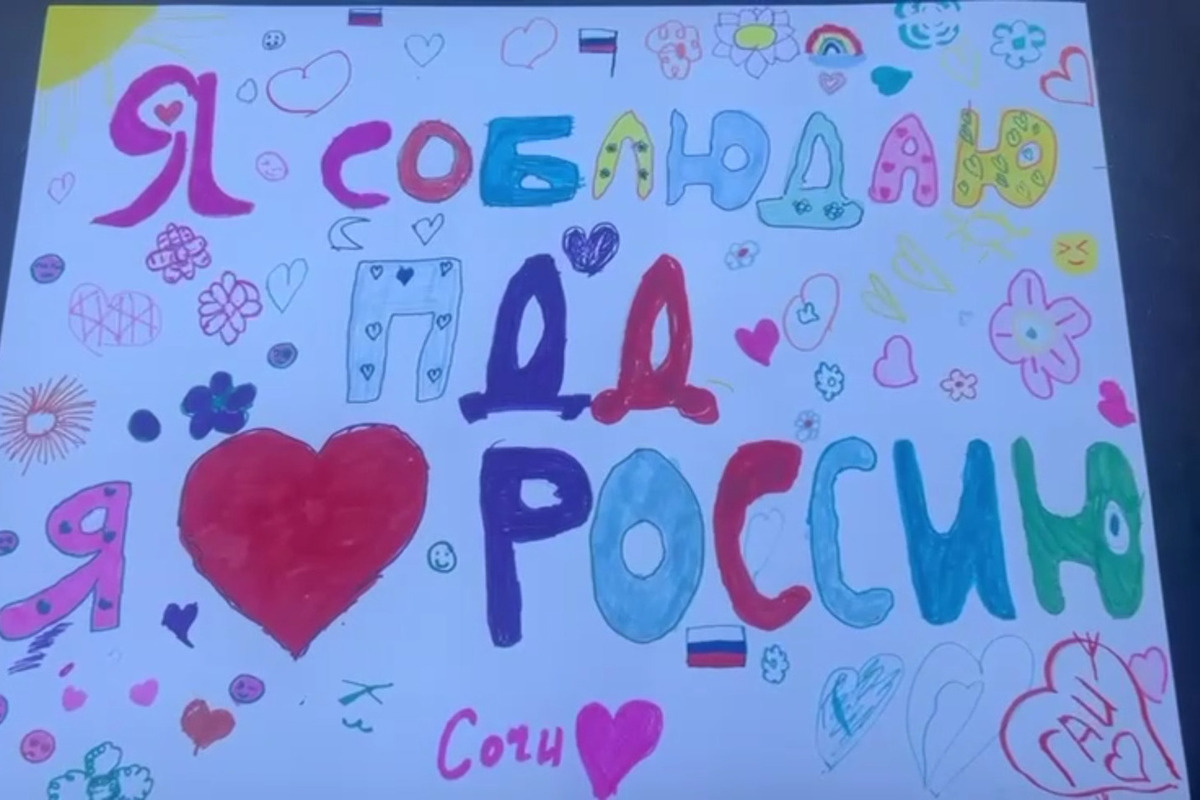 Я СОБЛЮДАЮ
ПДД
Я РОССИЮ
Сочи
ГАИ